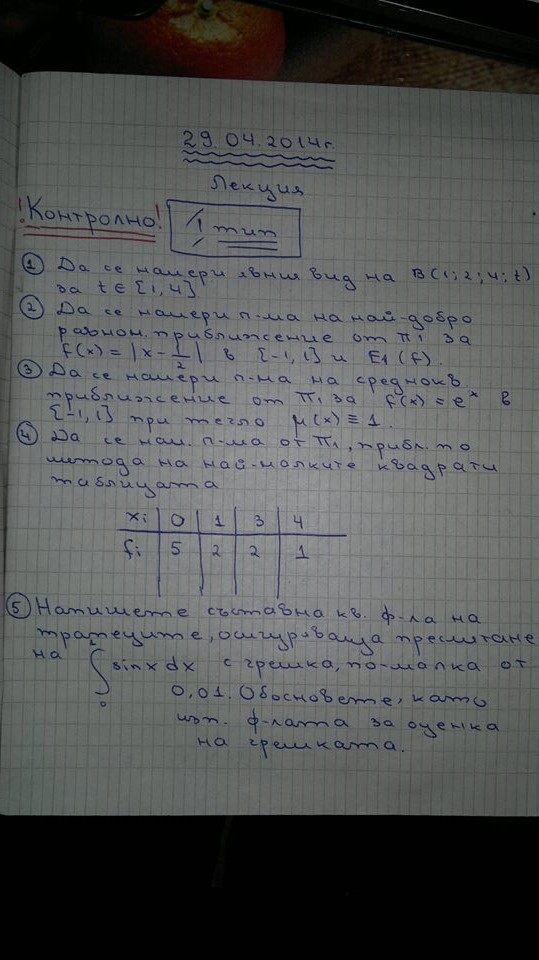 29.04.2014г.
Лекция
!Контролно! 1 тип
① Да се намери явния вид на B(1;2;4;t)
за t ∈ [1,4]
② Да се намери п-ма на най-добро
равном. приближение от π1 за
f(x) = |x - 1/2| в [-1,1] и E1(f).
③ Да се намери п-на на среднокв.
приближение от π1 за f(x) = e^x в
[-1,1] при тегло μ(x) ≡ 1.
④ Да се нам. п-ма от π1, прибл. по
метода на най-малките квадрати
таблицата
xi | 0 | 1 | 3 | 4
fi | 5 | 2 | 2 | 1
⑤ Напишете съставна кв. ф-ла на
трапеците, осигуряваща пресмятане
на ∫ sinx dx с грешка, по-малка от
0
0,01. Обосновете, като
изп. ф-лата за оценка
на грешката.